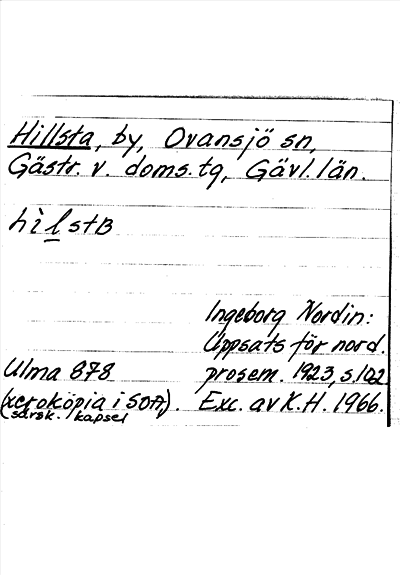 Hillsta, by, Ovansjö sn,
Gästr. v. doms. tg, Gävl. län.
hìlstB
Ingeborg Nordin:
Uppsats för nord.
Ulma 878 prosem. 1923, s. 102
(xerokopia i SOA). Exc. av K.H. 1966.
(särsk. kapsel